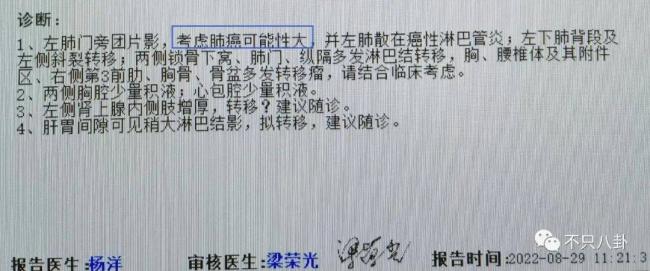 诊断：
1、左肺门旁团片影，考虑肺癌可能性大，并左肺散在癌性淋巴管炎；左下肺背段及
左侧斜裂转移；两侧锁骨下窝、肺门、纵隔多发淋巴结转移，胸、腰椎体及其附件
区、右侧第3前肋、胸骨、骨盆多发转移瘤，请结合临床考虑。
2、两侧胸腔少量积液；心包腔少量积液。
3、左侧肾上腺内侧肢增厚，转移？建议随诊。
4、肝胃间隙可见稍大淋巴结影，拟转移，建议随诊。
不只八卦
报告医生:杨洋 审核医生:梁荣光 报告时间:2022-08-29 11:21:3